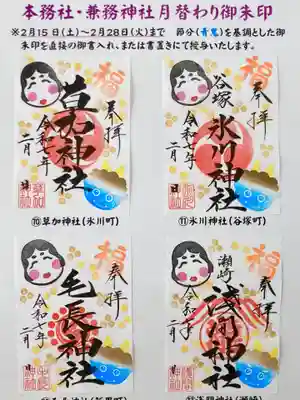 本務社・兼務神社月替わり御朱印
※2月15日(土)~2月28日(火)まで 節分(青鬼)を基調とした御
朱印を直接の御書入れ、または書置きにて授与いたします。
福
奉拝
草加神社
令和七年
二月
日
⑩草加神社(氷川町)
福
奉拝
谷塚
氷川神社
令和七年
二月
日
⑪氷川神社(谷塚町)
福
奉拝
毛長神社
令和七年
二月
福
奉拝
瀬崎
浅間神社
令和七年
二月
日